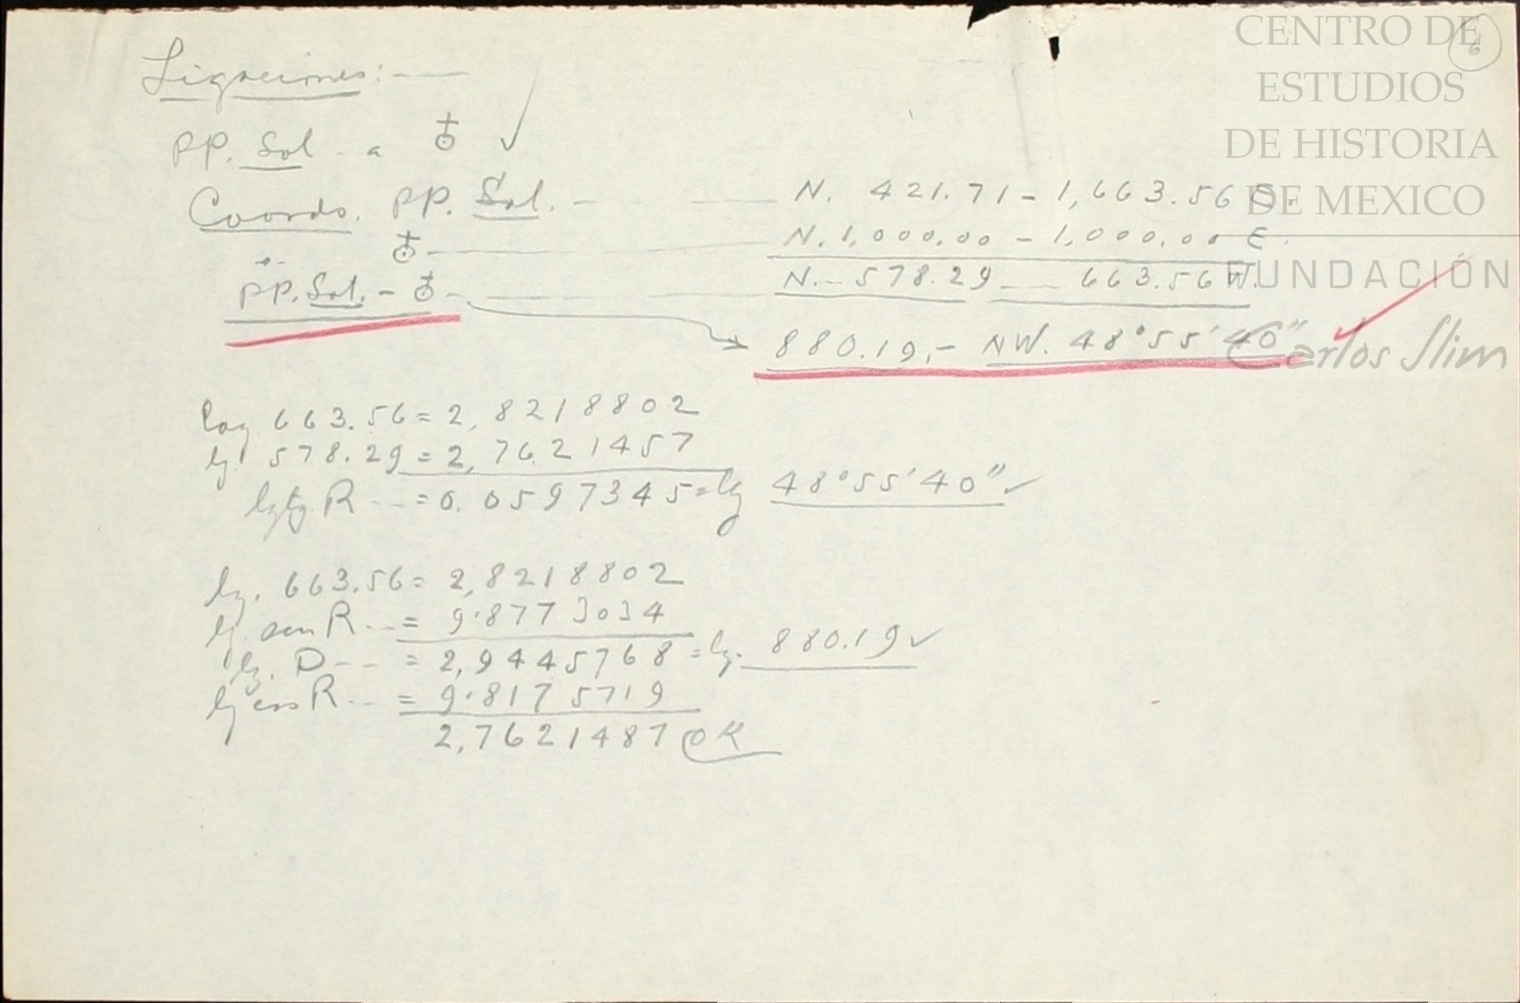 Ligaciones:-
PP. Sol - a ♁ ✓
Coords. PP. Sol. - N. 421.71 - 1,663.56 E.
♁ - N. 1,000.00 - 1,000.00 E.
PP. Sol. - ♁ - N. - 578.29 - 663.56 W.
880.19,- NW. 48°55'40"
log 663.56 = 2,8218802
lg. 578.29 = 2,7621457
lg tg. R --- = 0.0597345 = lg 48°55'40" ✓
lg. 663.56 = 2,8218802
lg. sen R --- = 9.8773034
lg. D --- = 2,9445768 = lg. 880.19 ✓
lg cos R --- = 9.8175719
2,7621487 OK
6
CENTRO DE
ESTUDIOS
DE HISTORIA
DE MEXICO
FUNDACIÓN
Carlos Slim